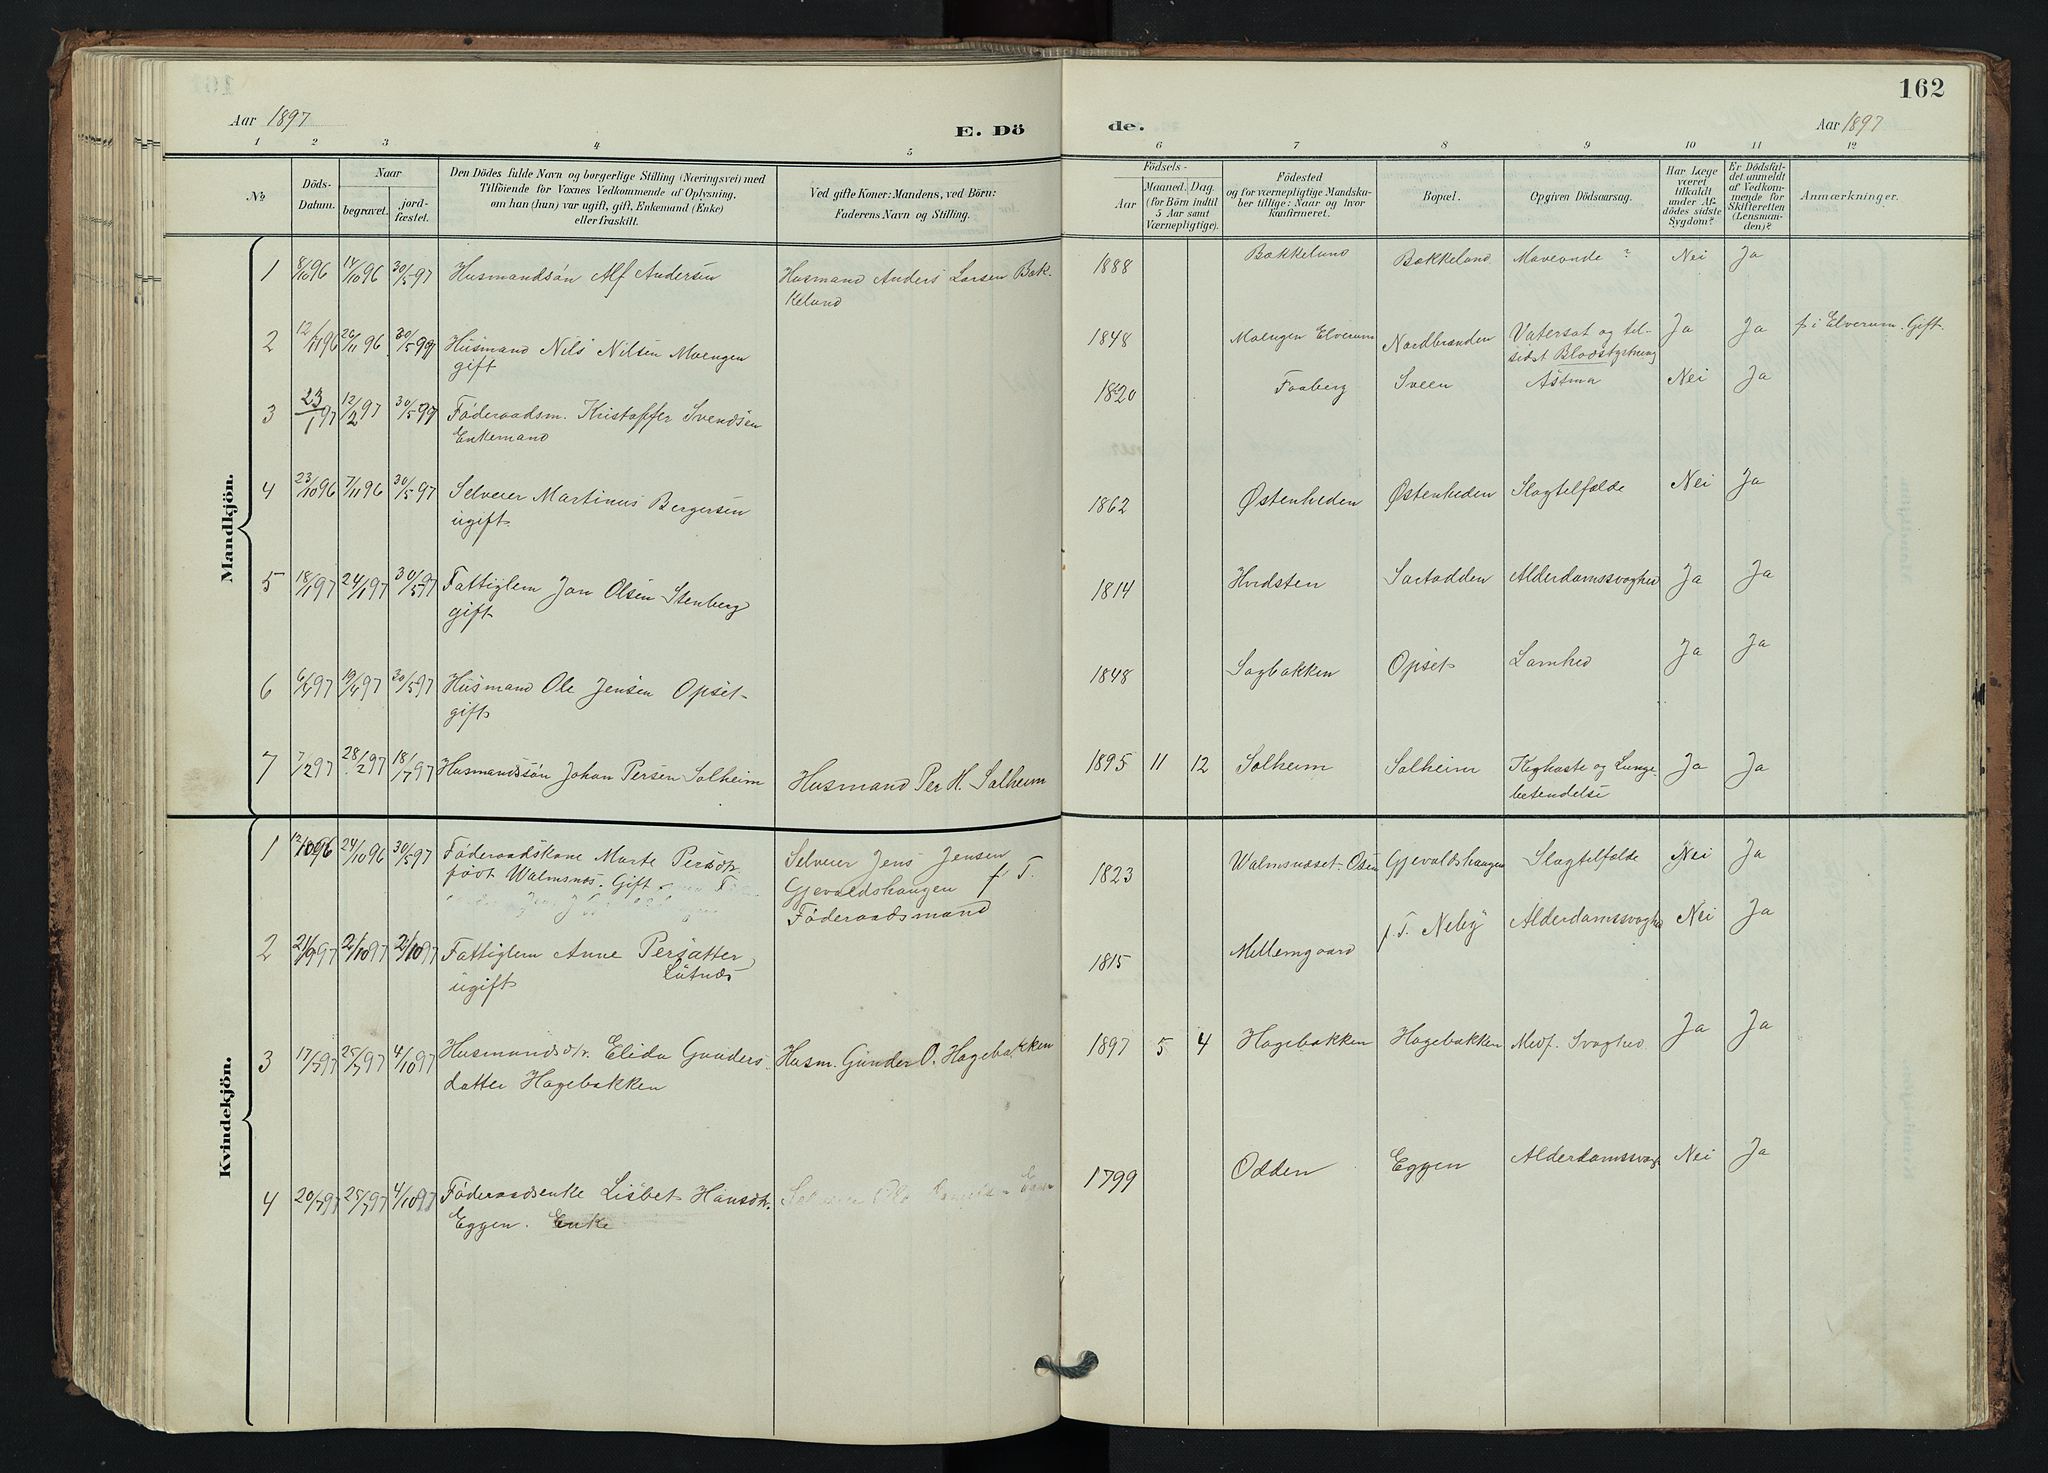 162
Aar 1897
E. Dö
de.
Aar 1897
1 2 3 4 5 6 7 8 9 10 11 12
No.
Döds-
Datum.
Naar
begravet.
jord-
fæstet.
Den Dödes fulde Navn og borgerlige Stilling (Næringsvei) med
Tilföiende for Voxnes Vedkommende af Oplysning,
om han (hun) var ugift, gift, Enkemand (Enke)
eller fraskilt.
Ved gifte Koner: Mandens, ved Börn:
Faderens Navn og Stilling.
Födsels-
Aar
Maaned. Dag.
(for Börn indtil
5 Aar samt
Værnepligtige).
Födested
og for værnepligtige Mandska-
ber tillige: Naar og hvor
konfirmeret.
Bopæl.
Opgiven Dödsaarsag.
Har Læge
været
tilkaldt
under Af-
dödes sidste
Sygdom?
Er Dödsfal-
det anmeldt
af Vedkom-
mende for
Skifteretten
(Lensman-
den)?
Anmærkninger.
Mandkjön.
1 8/10 96 14/10 96 30/5 97 Husmandsön Alf Andersen Husmand Anders Larsen Bæk- 1888 Bækkelund Bækkelund Maveonde ? Nei Ja
kelund
2 12/11 96 26/11 96 30/5 97 Husmand Nils Nilsen Moengen 1848 Moengen Elverum Nordbrænden Vatersot og til- Ja Ja f i Elverum. Gift.
gift sidst Blodstyrtning
3 23/1 97 12/2 97 30/5 97 Föderaadsm. Kristoffer Svendsen 1820 Faaberg Sveen Astma Nei Ja
Enkemand
4 23/10 96 7/11 96 30/5 97 Selveier Martinus Bergersen 1862 Østenheden Østenheden Slagtilfælde Nei Ja
ugift
5 18/1 97 24/1 97 30/5 97 Fattiglem Jon Olsen Stenberg 1814 Hvidsten Sætodden Alderdomssvaghed Ja Ja
gift
6 6/4 97 19/4 97 30/5 97 Husmand Ole Jensen Opset 1848 Sagbakken Opset Lamhed Ja Ja
gift
7 7/2 97 28/2 97 18/7 97 Husmandssön Johan Persen Solheim Husmand Per H. Solheim 1895 11 12 Solheim Solheim Kighoste og Lunge- Ja Ja
betendelse
Kvindekjön.
1 12/10 96 24/10 96 30/5 97 Föderaadskone Marte Persdtr. Selveier Jens Jensen 1823 Walmsnæset-Osen Gjevaldshaugen Slagtilfælde Nei Ja
född Walmsnæs. Gift Gjevaldshaugen f T.
Föderaadsmand
2 21/9 97 2/10 97 2/10 97 Fattiglem Anne Persdatter, 1815 Mellemgaard f. T. Neby Alderdomssvaghed Nei Ja
ugift Lutnæs
3 17/7 97 25/7 97 4/10 97 Husmandsdtr. Elida Gunders- Husm. Gunder O. Hagebakken 1897 5 4 Hagebakken Hagebakken Medf. Svaghed Ja Ja
datter Hagebakken
4 20/7 97 25/7 97 4/10 97 Föderaadsenke Lisbet Hansdtr. Selveier 1799 Odden Eggen Alderdomssvagh. Nei Ja
Eggen. Enke